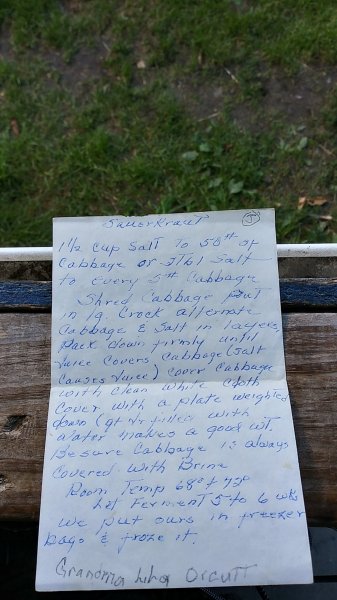 Sauerkraut
1½ cup salt to 50# of
Cabbage or 3Tbl Salt
to every 5# Cabbage
Shred Cabbage put
in lg. Crock alternate
Cabbage & Salt in layers
Pack down firmly until
Juice Covers Cabbage (salt
Causes Juice) Cover Cabbage
with clean white cloth
Cover with a plate weighted
down (qt jar filled with
water makes a good wt.
Be sure Cabbage is always
Covered with Brine
Room Temp 68° + 72°
Let Ferment 5 to 6 wks
we put ours in freezer
bags & froze it.
Grandma Orcutt